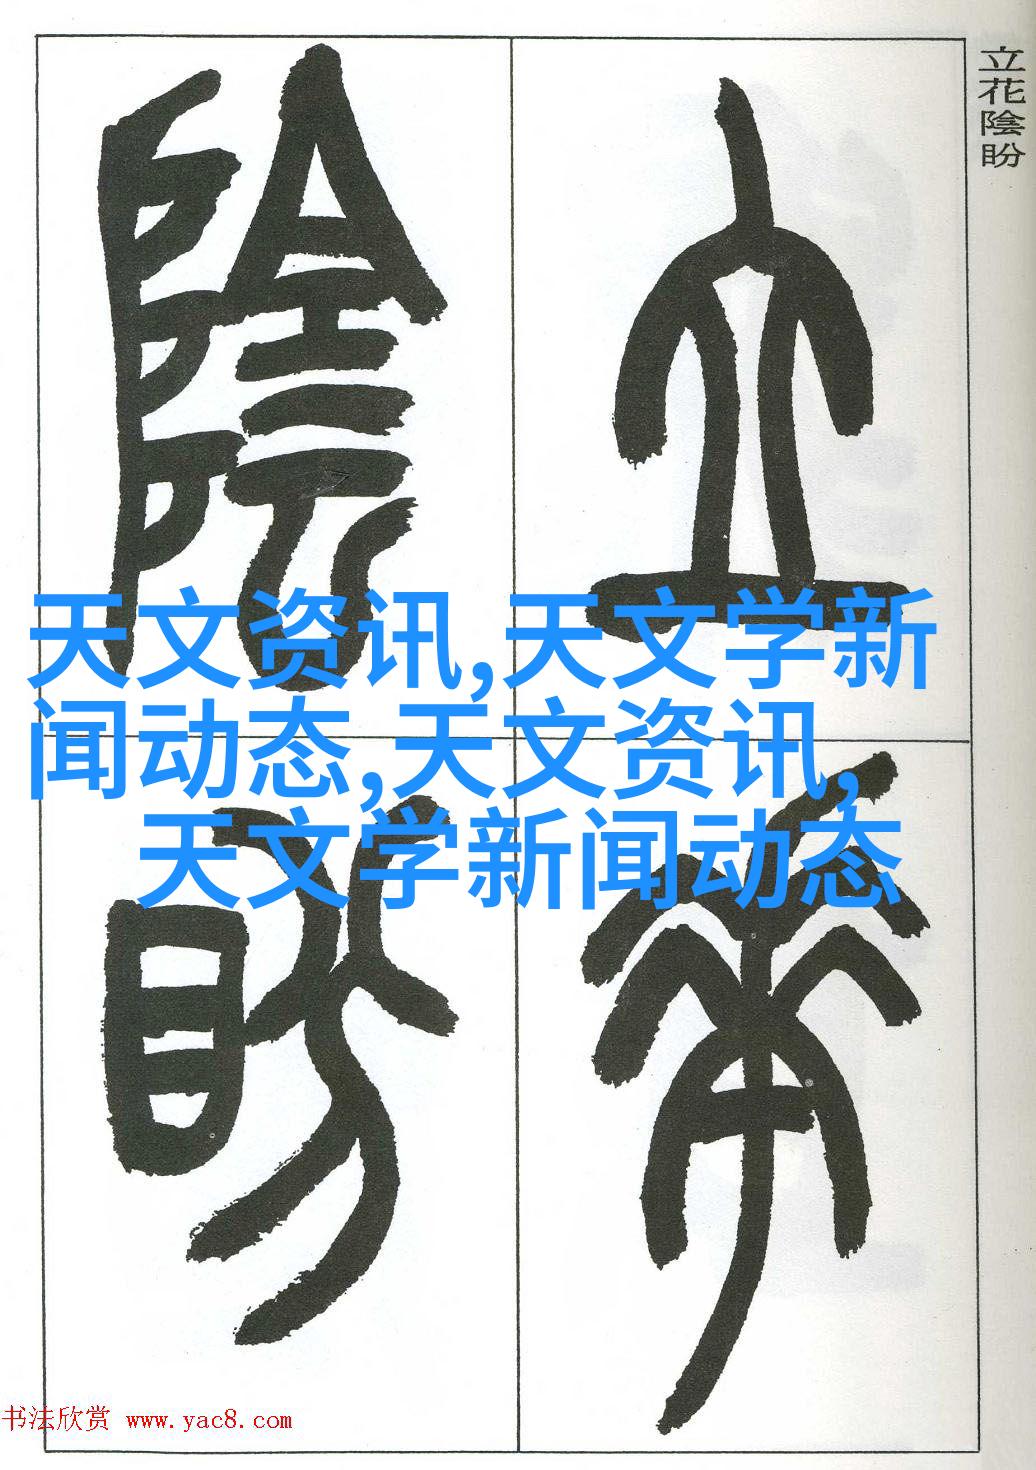 立花陰盼
立
花
陰
盼
天文资讯,天文学新
闻动态,天文资讯,
天文学新闻动态
书法欣赏 www.yac8.com